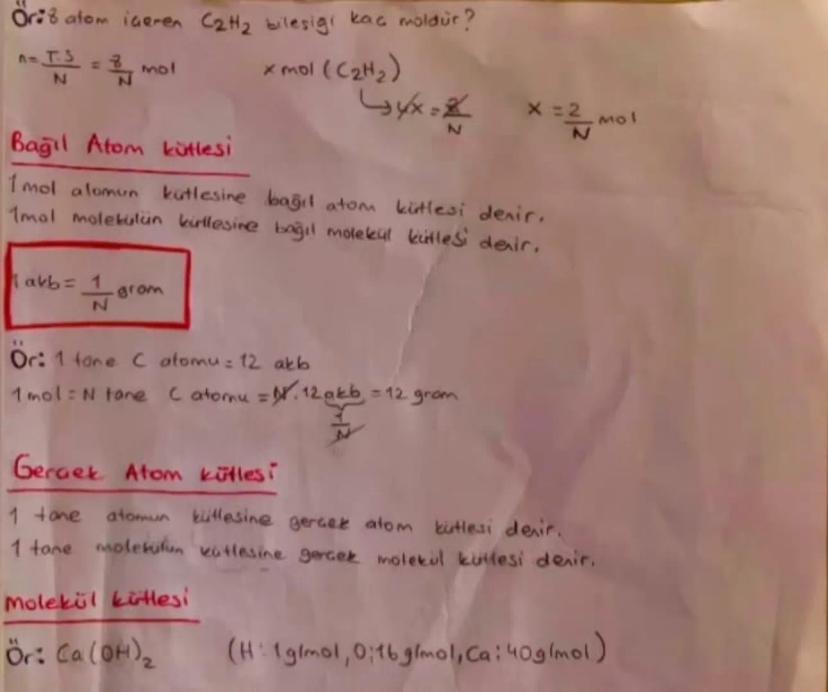 Ör: 8 atom içeren C₂H₂ bileşiği kaç moldür?
n = T.S/N = 8/N mol    x mol (C₂H₂)
↳ 4x = 8/N    x = 2/N mol
Bağıl Atom kütlesi
1 mol atomun kütlesine bağıl atom kütlesi denir.
1mol molekülün kütlesine bağıl molekül kütlesi denir.
1 akb = 1/N gram
Ör: 1 tane C atomu = 12 akb
1 mol = N tane C atomu = N . 12 akb = 12 gram
1/N
Gerçek Atom kütlesi
1 tane atomun kütlesine gerçek atom kütlesi denir.
1 tane molekülün kütlesine gerçek molekül kütlesi denir.
Molekül kütlesi
Ör: Ca(OH)₂    (H: 1g/mol, O: 16 g/mol, Ca: 40g/mol)